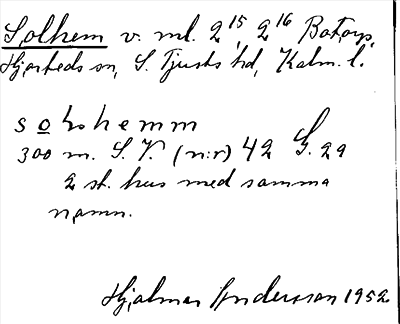 Solhem v. ml. 2¹⁵, 2¹⁶ Batorp,
Hjorteds sn, S. Tjusts hd, Kalm. l.
solshemm
300 m. S. V. (n:r) 42 G. 29
2 st. hus med samma
namn.
Hjalmar Andersson 1952